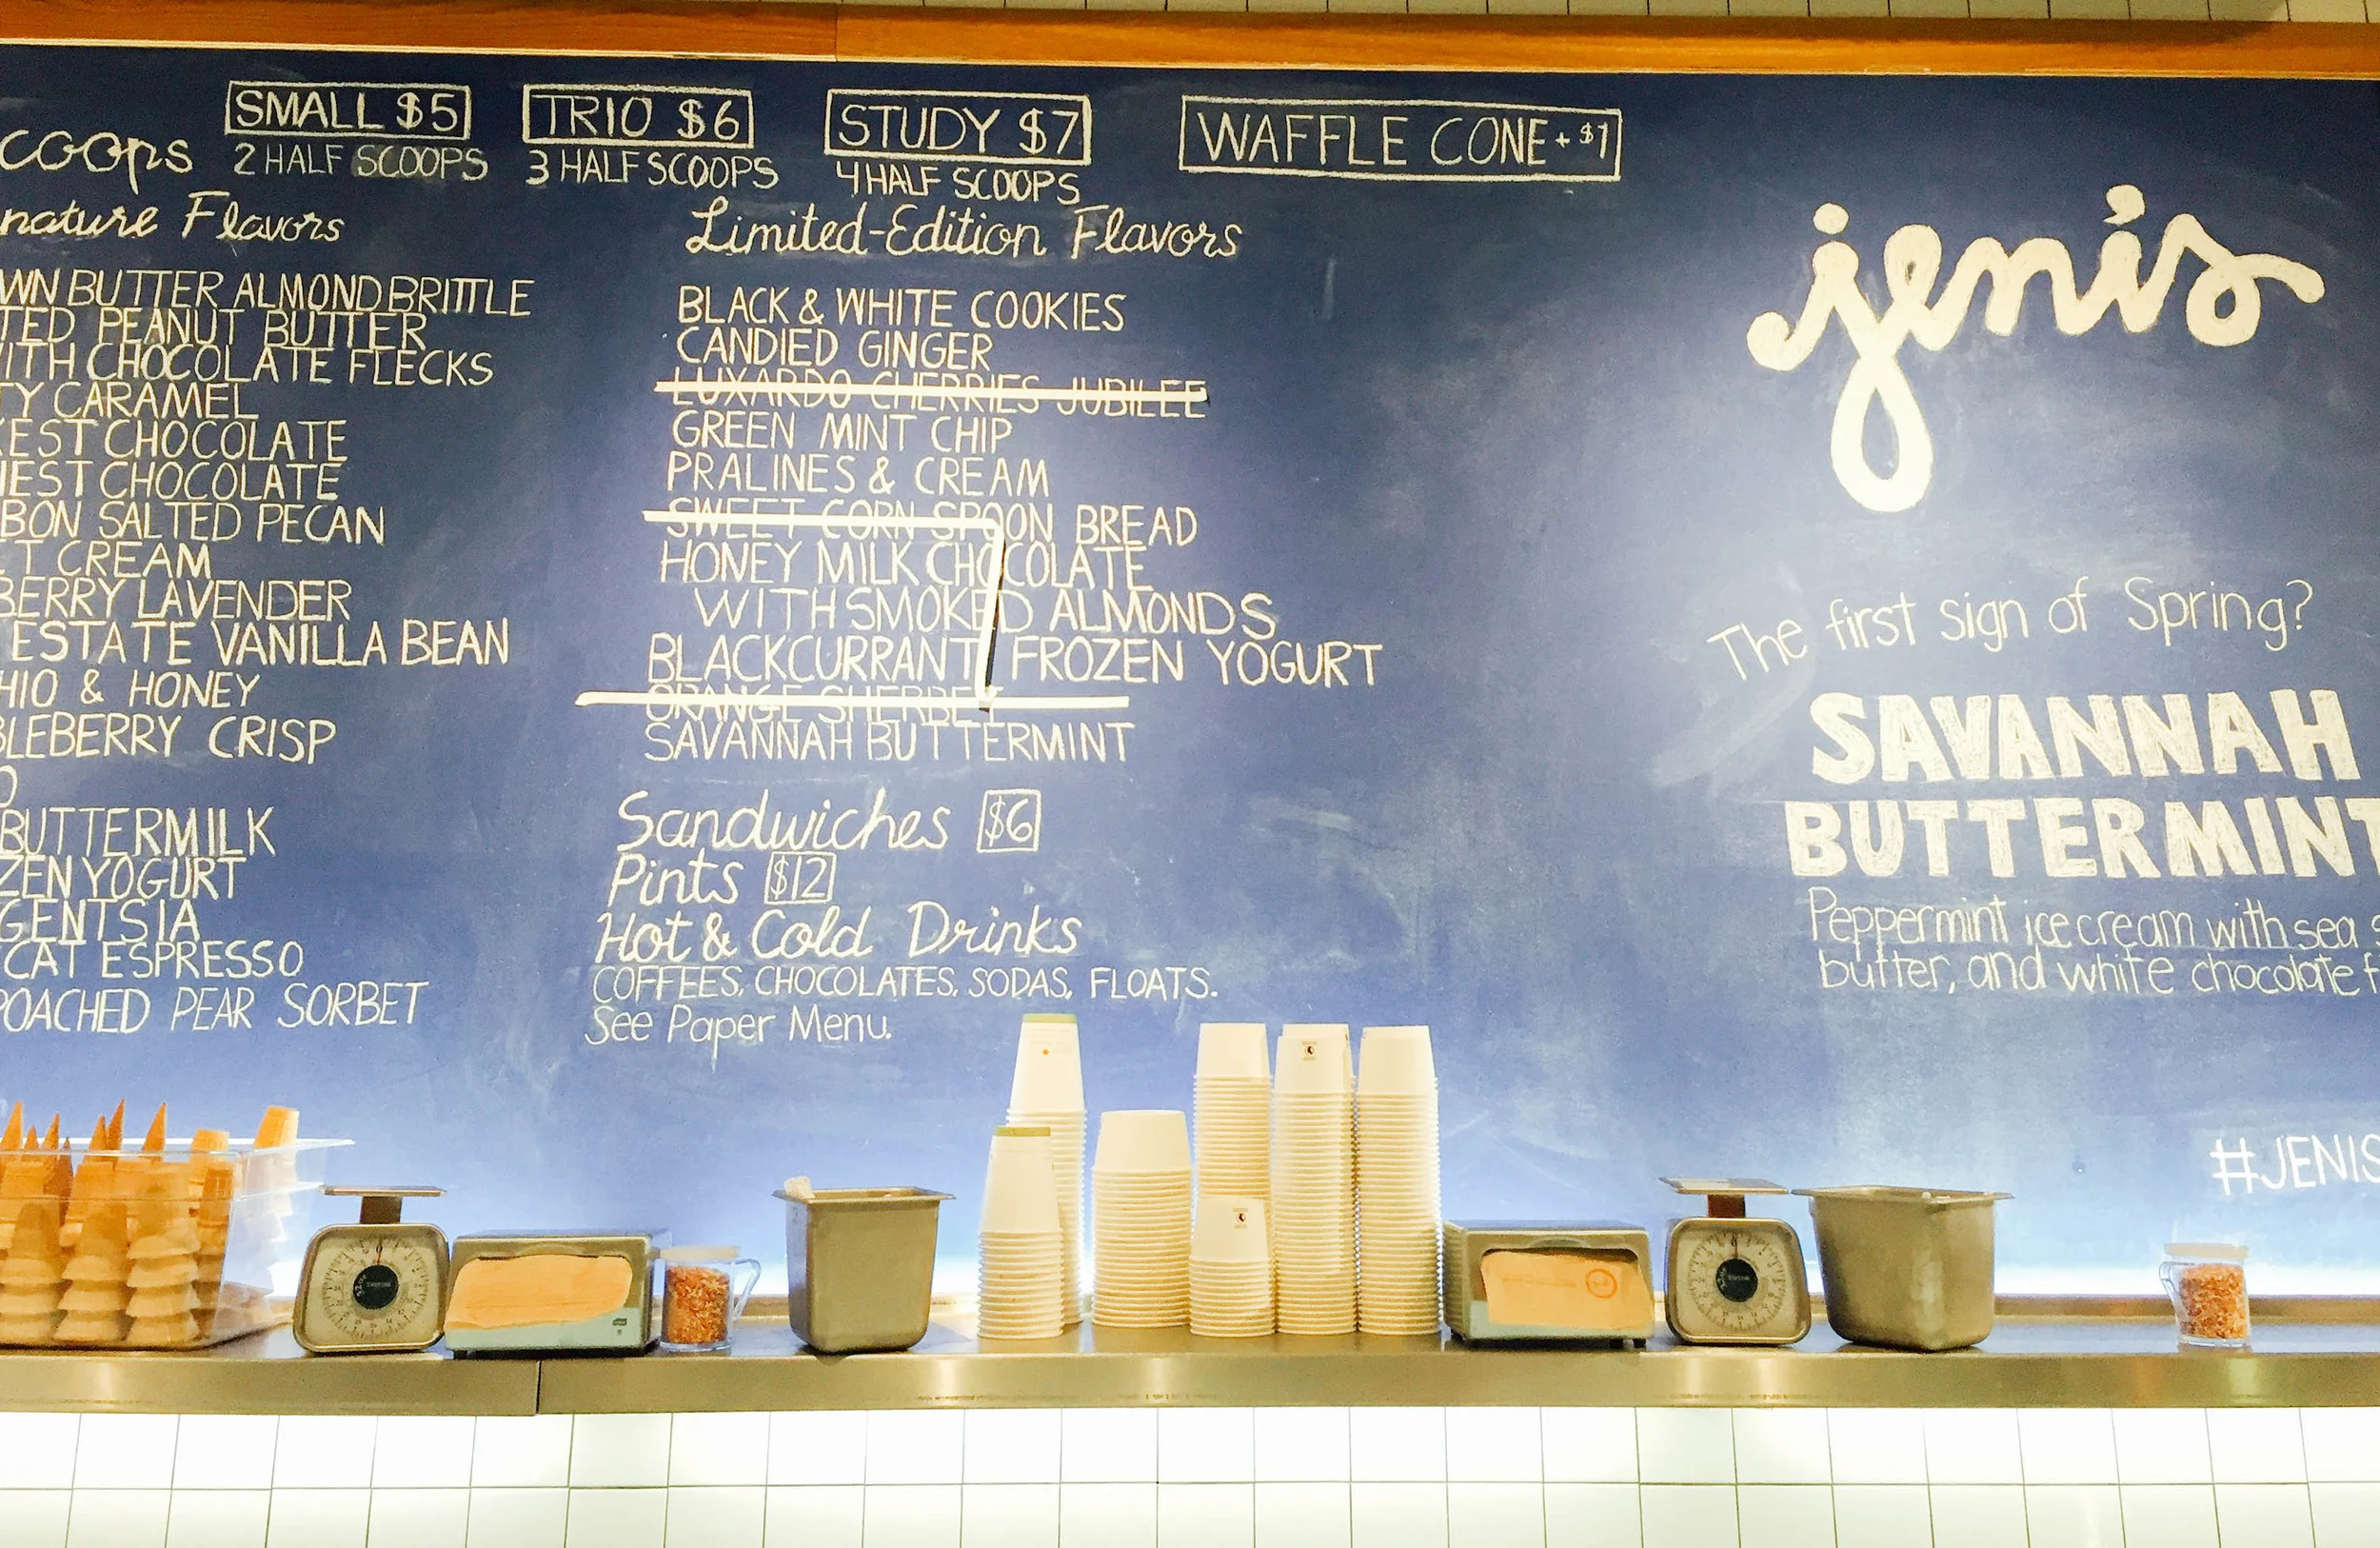 SMALL $5
2 HALF SCOOPS
TRIO $6
3 HALF SCOOPS
STUDY $7
4 HALF SCOOPS
WAFFLE CONE + $1
coops
nature Flavors
WN BUTTER ALMOND BRITTLE
TED PEANUT BUTTER
ITH CHOCOLATE FLECKS
TY CARAMEL
KEST CHOCOLATE
IEST CHOCOLATE
BON SALTED PECAN
T CREAM
BERRY LAVENDER
ESTATE VANILLA BEAN
HIO & HONEY
BLEBERRY CRISP
O
BUTTERMILK
ZEN YOGURT
GENTSIA
CAT ESPRESSO
POACHED PEAR SORBET
Limited-Edition Flavors
BLACK & WHITE COOKIES
CANDIED GINGER
LUXARDO CHERRIES JUBILEE
GREEN MINT CHIP
PRALINES & CREAM
SWEET CORN SPOON BREAD
HONEY MILK CHOCOLATE
WITH SMOKED ALMONDS
BLACKCURRANT FROZEN YOGURT
ORANGE SHERBET
SAVANNAH BUTTERMINT
Sandwiches $6
Pints $12
Hot & Cold Drinks
COFFEES, CHOCOLATES, SODAS, FLOATS.
See Paper Menu.
jeni's
The first sign of Spring?
SAVANNAH
BUTTERMINT
Peppermint ice cream with sea
butter, and white chocolate f
#JENIS